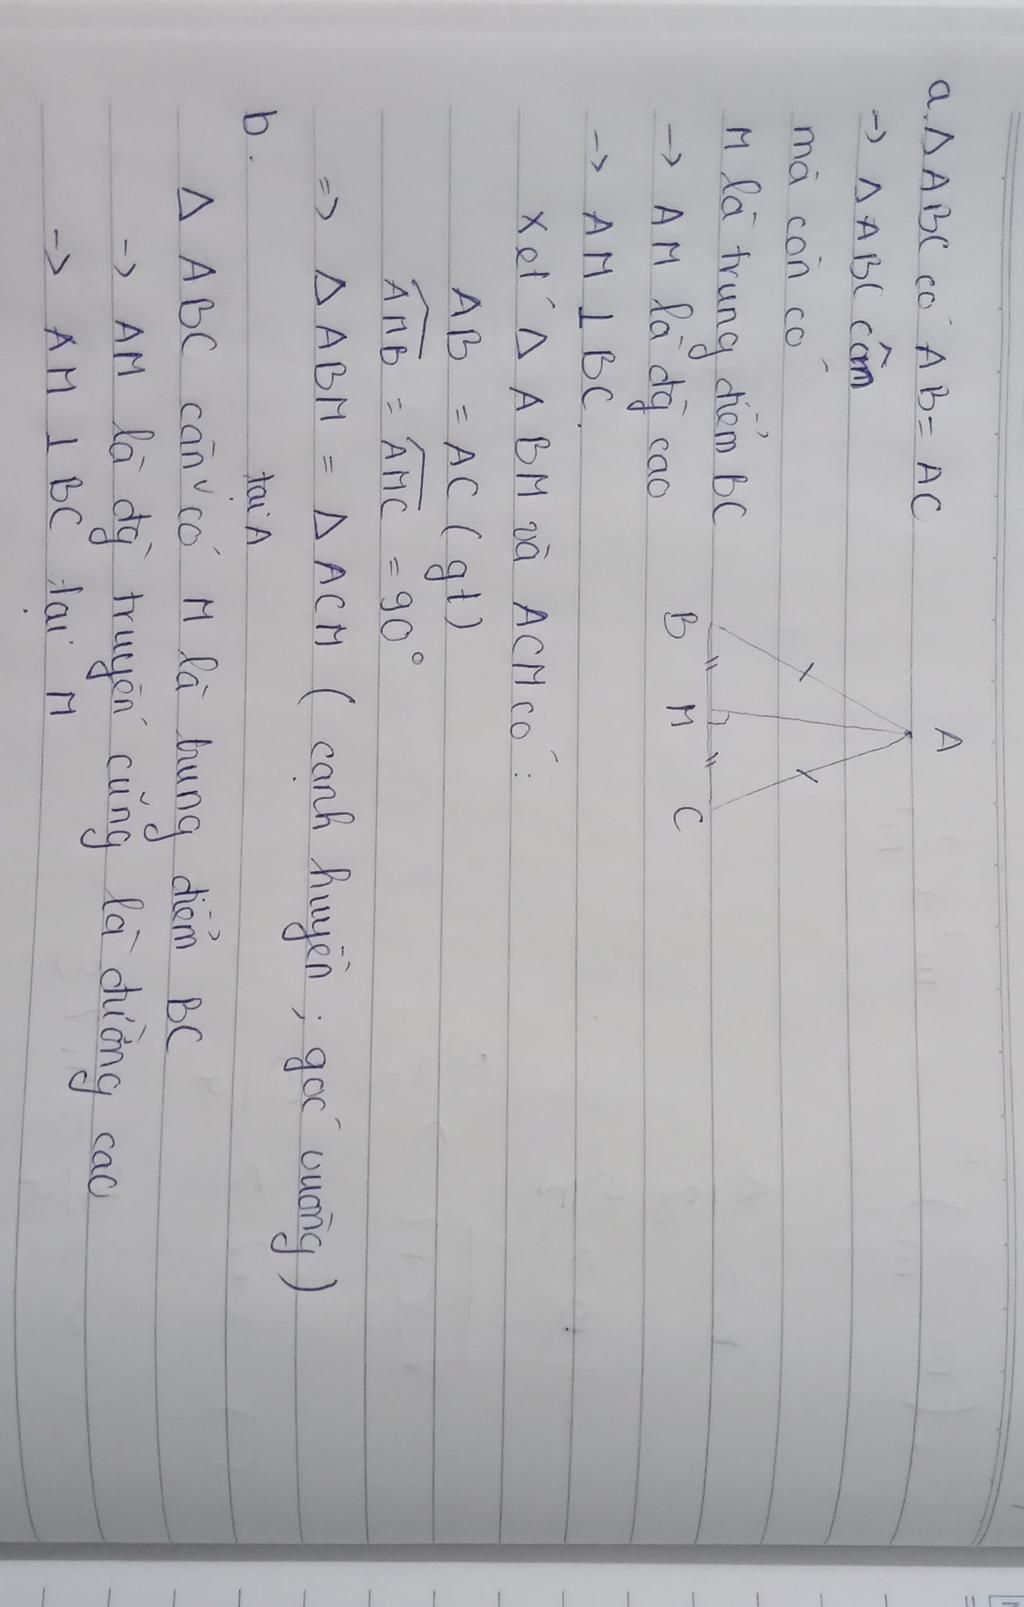 a. Δ ABC có AB = AC
→ Δ ABC cân
mà còn có
M là trung điểm BC
→ AM là đg cao
→ AM ⊥ BC.
A
B M C
Xét Δ ABM và ACM có:
AB = AC (gt)
AMB = AMC = 90°
=> Δ ABM = Δ ACM ( cạnh huyền ; góc vuông )
b.
tại A
Δ ABC cân có M là trung điểm BC
→ AM là đg truyến cũng là đường cac
→ AM ⊥ BC tại M